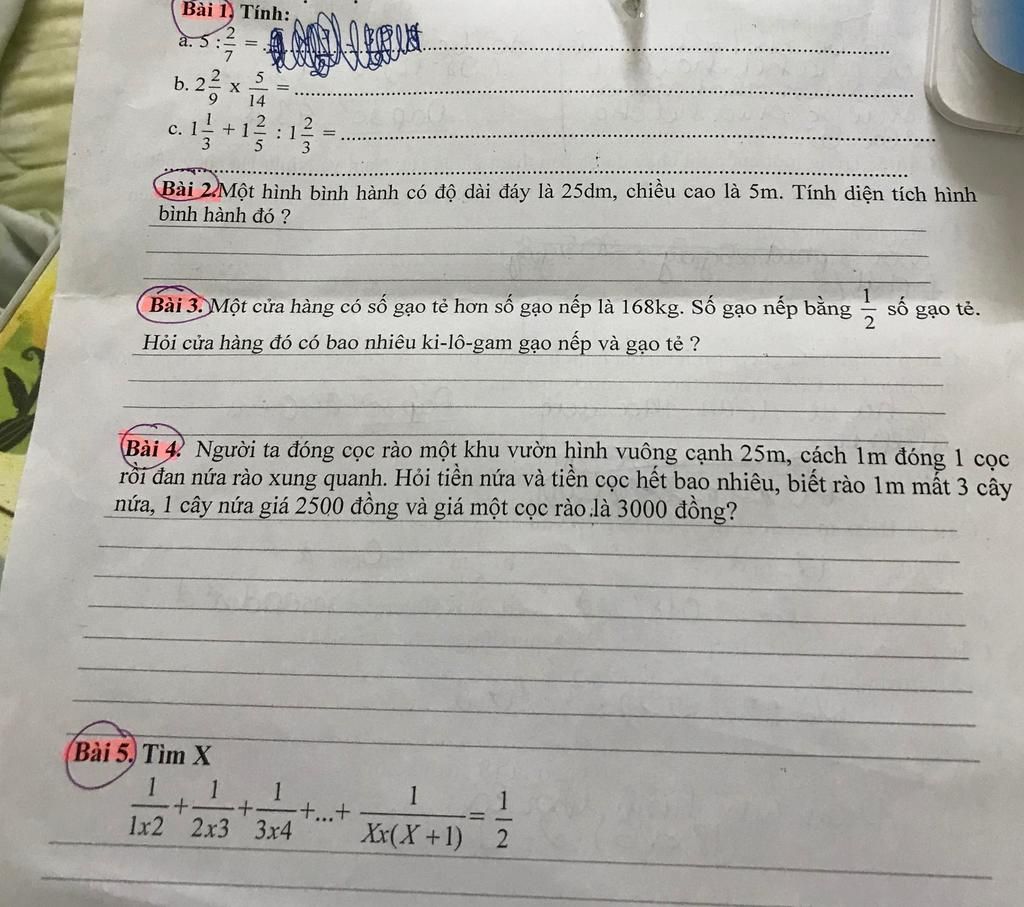 Bài 1. Tính:
a. 5 : 2/7 = ........
b. 2 2/9 x 5/14 = ........
c. 1 1/3 + 1 2/5 : 1 2/3 = ........
Bài 2. Một hình bình hành có độ dài đáy là 25dm, chiều cao là 5m. Tính diện tích hình
bình hành đó ?
Bài 3. Một cửa hàng có số gạo tẻ hơn số gạo nếp là 168kg. Số gạo nếp bằng 1/2 số gạo tẻ.
Hỏi cửa hàng đó có bao nhiêu ki-lô-gam gạo nếp và gạo tẻ ?
Bài 4. Người ta đóng cọc rào một khu vườn hình vuông cạnh 25m, cách 1m đóng 1 cọc
rồi đan nứa rào xung quanh. Hỏi tiền nứa và tiền cọc hết bao nhiêu, biết rào 1m mất 3 cây
nứa, 1 cây nứa giá 2500 đồng và giá một cọc rào là 3000 đồng?
Bài 5. Tìm X
1/1x2 + 1/2x3 + 1/3x4 +...+ 1/Xx(X+1) = 1/2